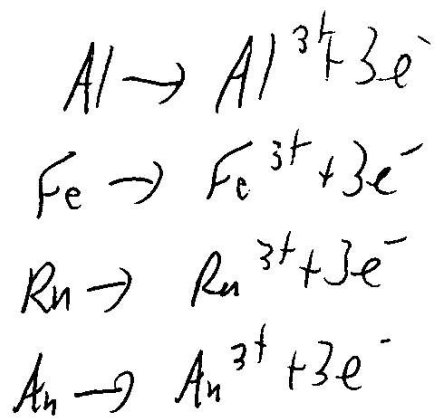 Al → Al³⁺ + 3e⁻
Fe → Fe³⁺ + 3e⁻
Rn → Rn³⁺ + 3e⁻
An → An³⁺ + 3e⁻